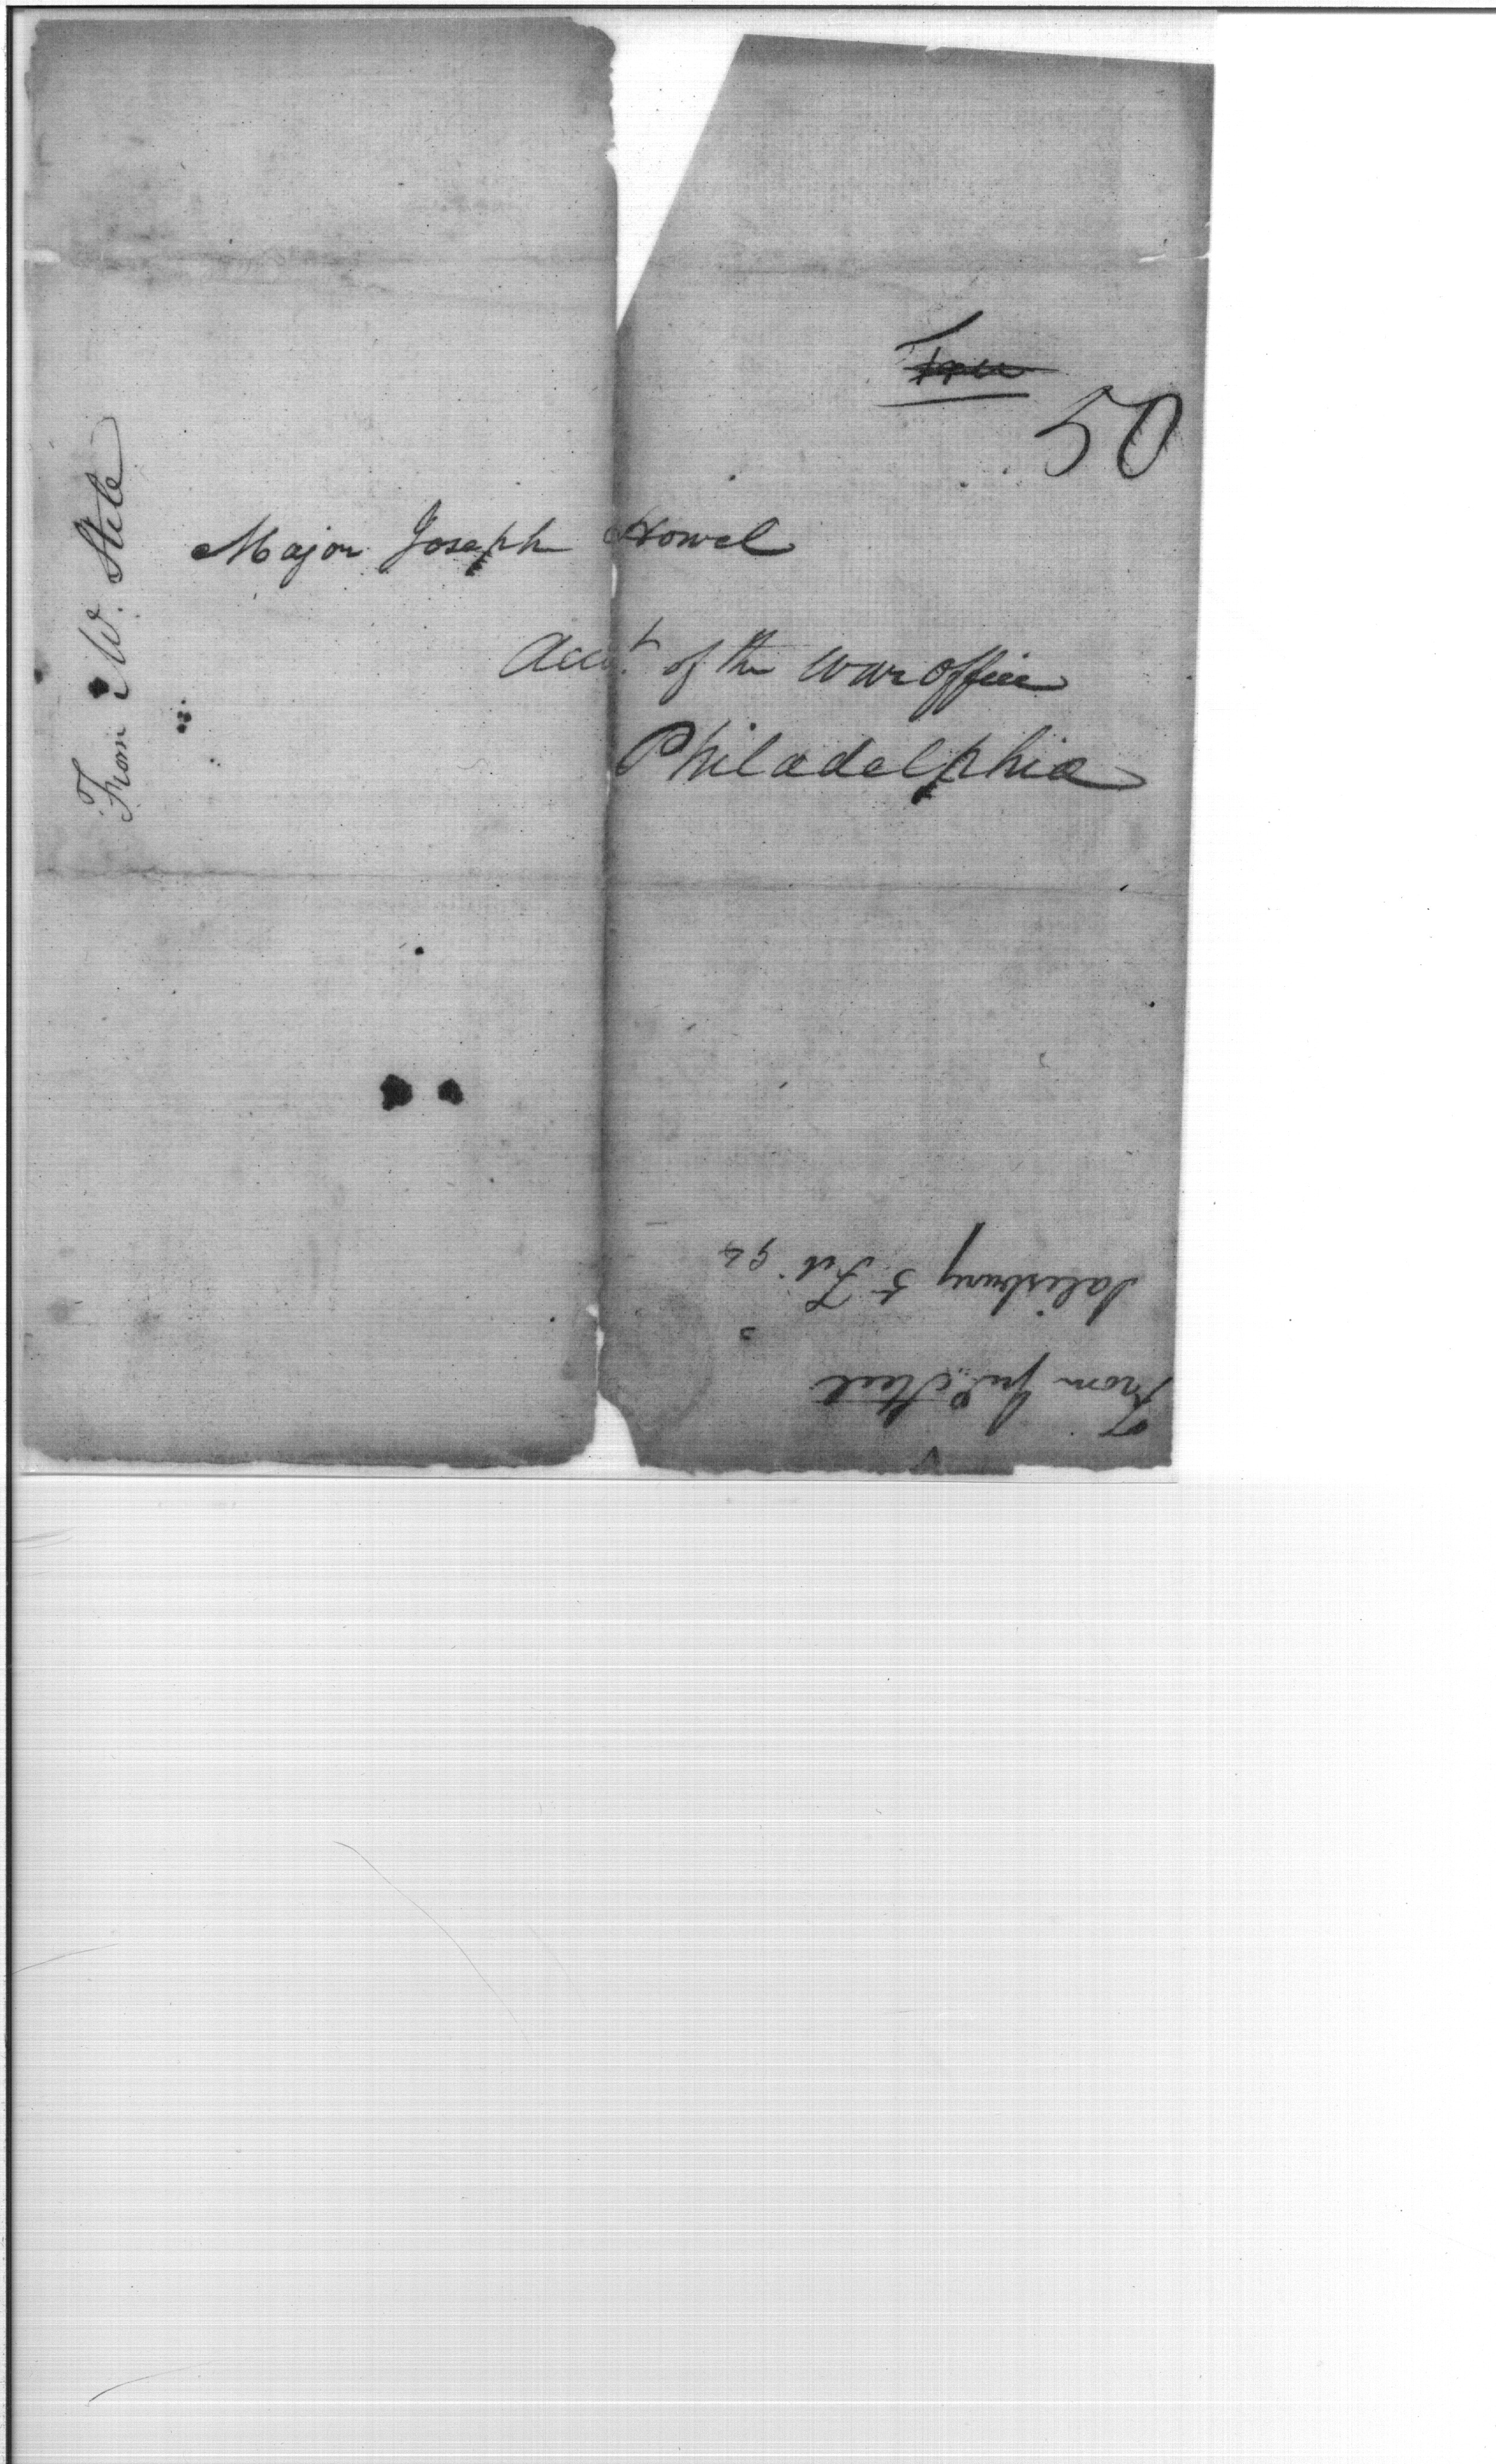 Free
50
From W. Stele
Major Joseph Howel
Acct. of the war office
Philadelphia
From Steel
Salisbury 5 Feb